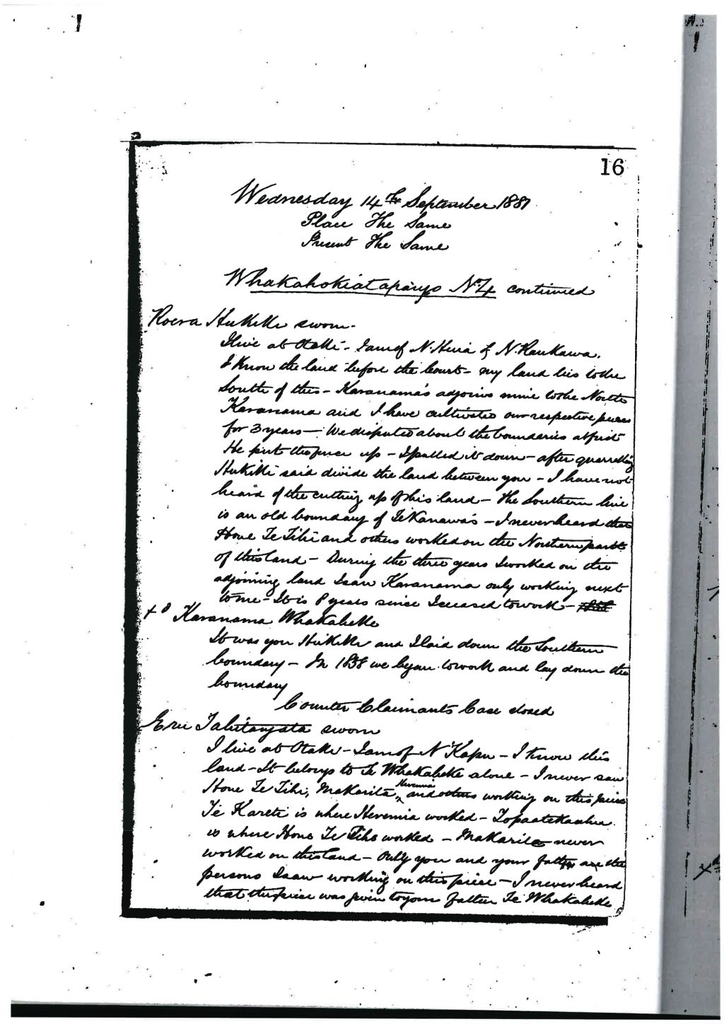 16
Wednesday 14th September 1881
Place The Same
Present The Same
Whakahokiatapango No 4 continued
Roera Hukiki sworn -
I live at Otaki - I am of N. Huia & N. Raukawa.
I know the land before the Court - my land lies to the
South of this - Karanama's adjoins mine to the North
Karanama and I have cultivated our respective pieces
for 3 years - We disputed about the boundaries at first
He put the fence up - I pulled it down - after quarrelling
Hukiki said divide the land between you - I have not
heard of the cutting up of his land - The Southern line
is an old boundary of Te Kanawa's - I never heard that
Hone Te Tihi and others worked on the Northern part
of this land - During the three years I worked on the
adjoining land I saw Karanama only working next
to me - It is 8 years since I ceased to work -
Karanama Whakaheke
It was you Hukiki and I laid down the Southern
boundary - In 1858 we began to work and lay down the
boundary
Counter Claimants Case closed
sworn
I live at Otaki - I am of N Kapu - I know this
land - It belongs to Te Whakaheke alone - I never saw
Hone Te Tihi, Makarita, Heremia and others working on this piece
Te Kareti is where Heremia worked -
is where Hone Te Tihi worked - Makarita never
worked on this land - Only you and your father are the
persons I saw working on this piece - I never heard
that this piece was given to your father Te Whakaheke